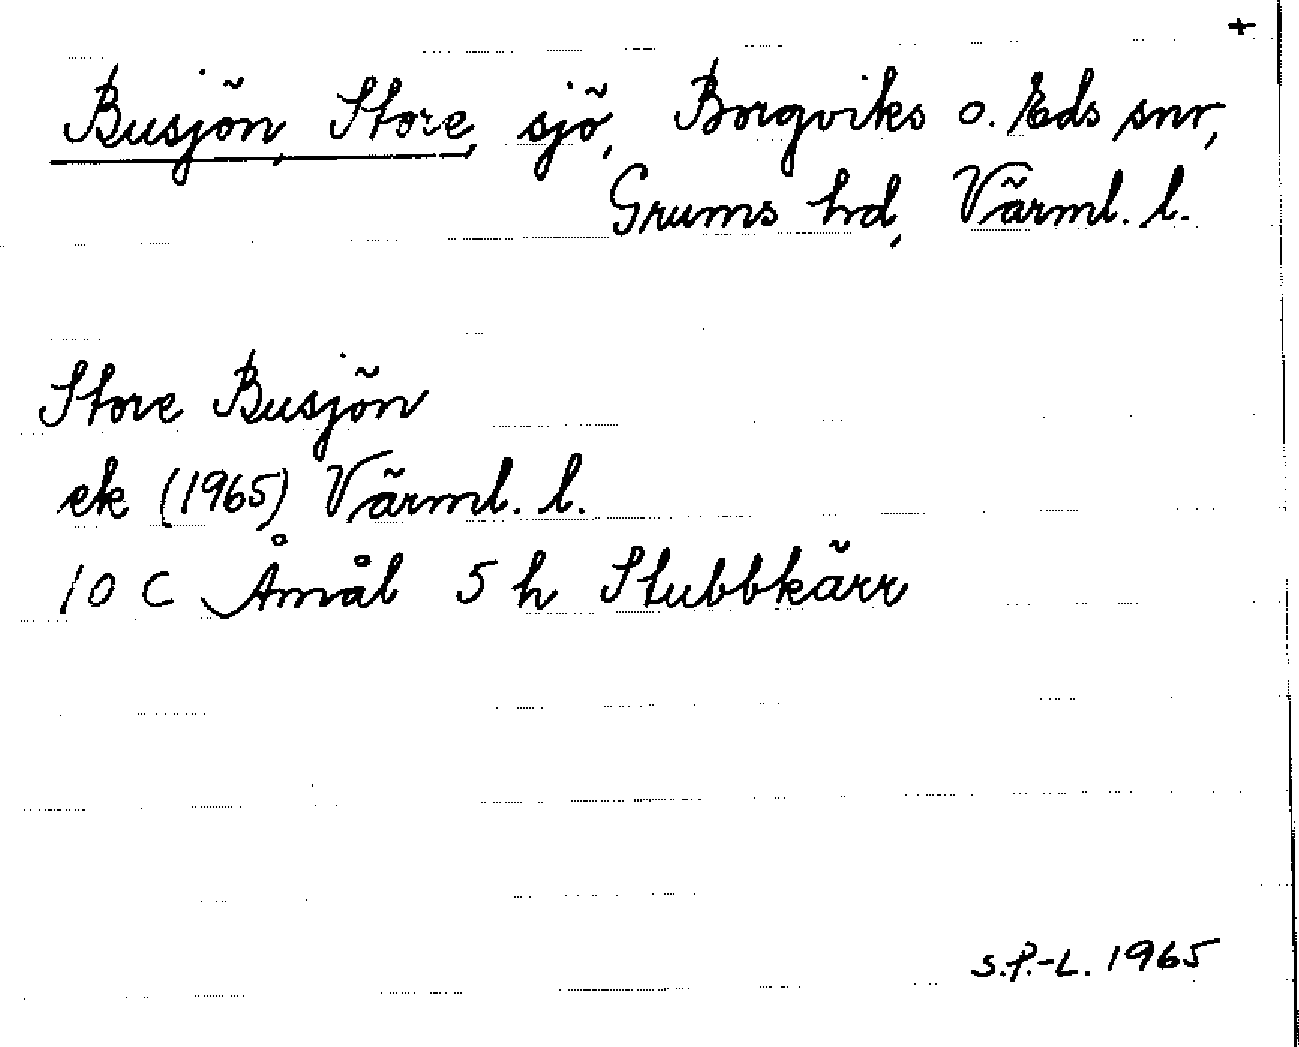 +
Busjön, Store, sjö, Borgviks o. Eds snr,
Grums hd, Värml. l.
Store Busjön
ek (1965) Värml. l.
10 C Åmål 5 h Stubbkärr
S.P.-L. 1965